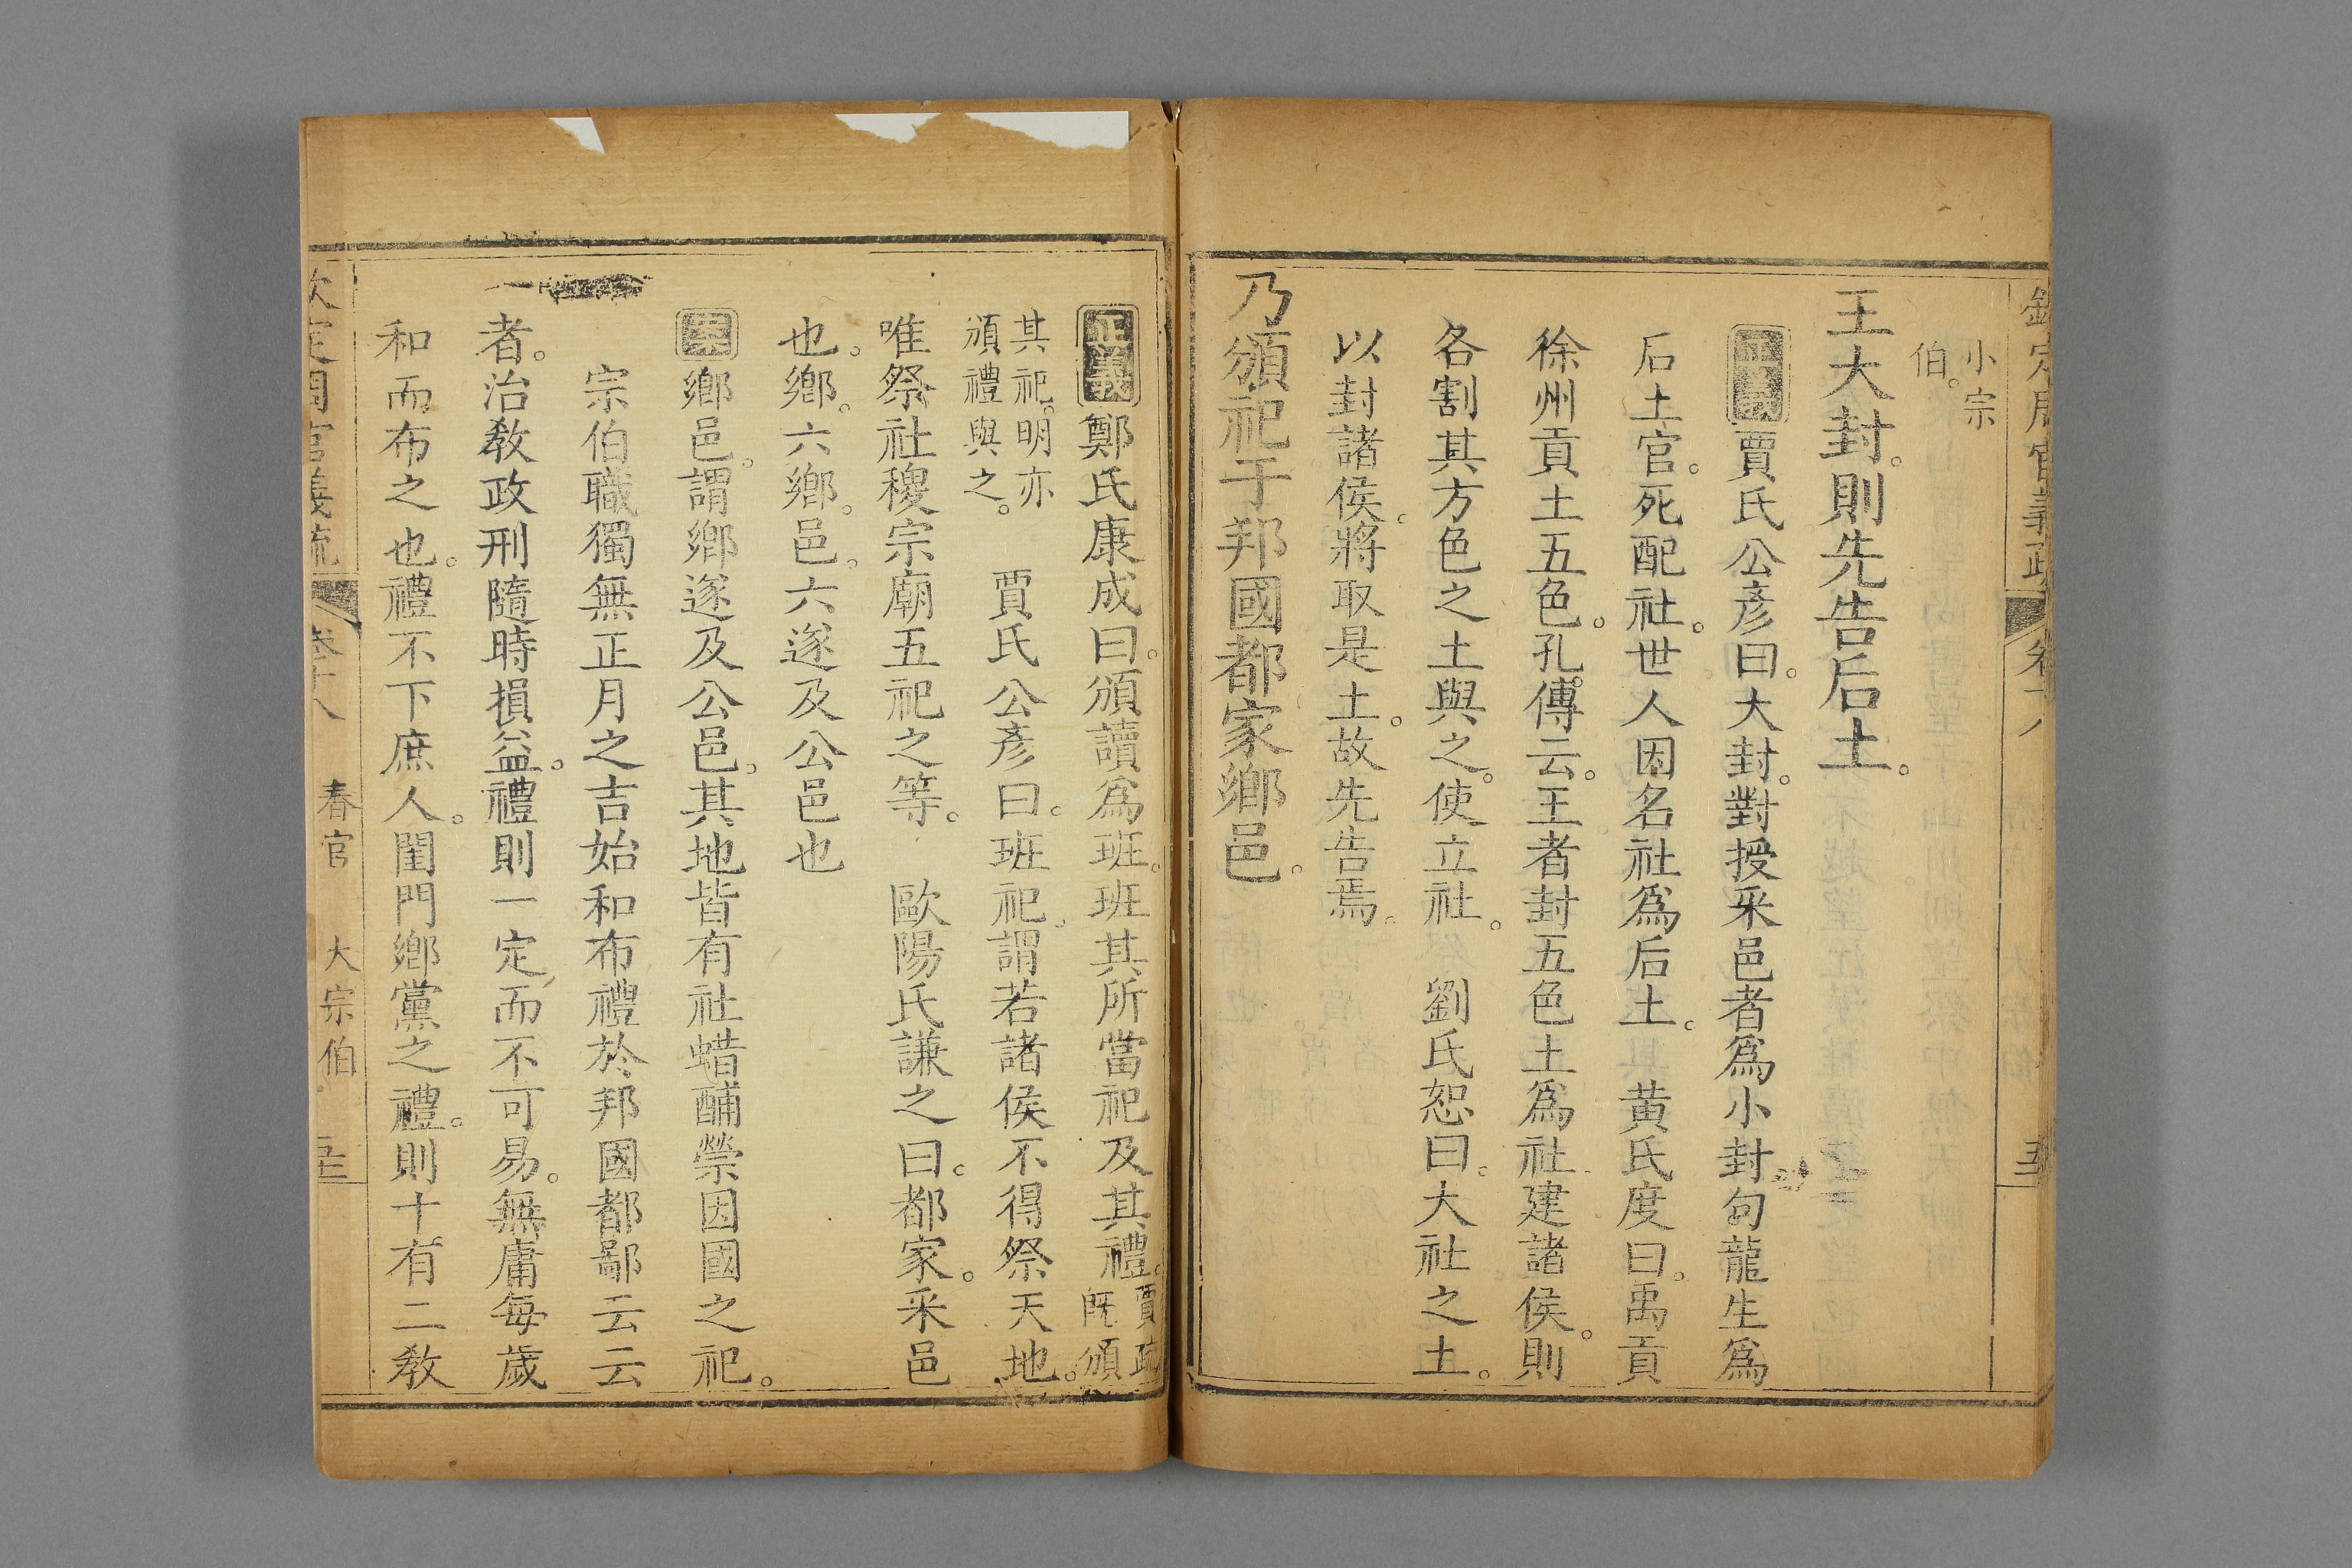 欽定周官義疏 卷十八
小宗
伯。
王大封。則先告后土。
正義賈氏公彥曰。大封。對授采邑者為小封句龍生為
后土官。死配社。世人因名社為后土。 黃氏度曰。禹貢
徐州貢土五色。孔傳云。王者封五色土為社建諸侯。則
各割其方色之土與之。使立社。 劉氏恕曰。大社之土。
以封諸侯。將取是土。故先告焉。
乃頒祀于邦國都家鄉邑。
正義鄭氏康成曰。頒讀為班。班其所當祀及其禮。賈疏
既頒
其祀。明亦
頒禮與之。 賈氏公彥曰。班祀。謂若諸侯不得祭天地。
唯祭社稷宗廟五祀之等。 歐陽氏謙之曰。都家。采邑
也。鄉。六鄉。邑。六遂及公邑也
案鄉邑。謂鄉遂及公邑。其地皆有社蜡酺禜因國之祀。
宗伯職獨無正月之吉始和布禮於邦國都鄙云云
者。治教政刑隨時損益。禮則一定而不可易。無庸每歲
和而布之也。禮不下庶人。閨門鄉黨之禮。則十有二教
欽定周官義疏 卷十八 春官 大宗伯